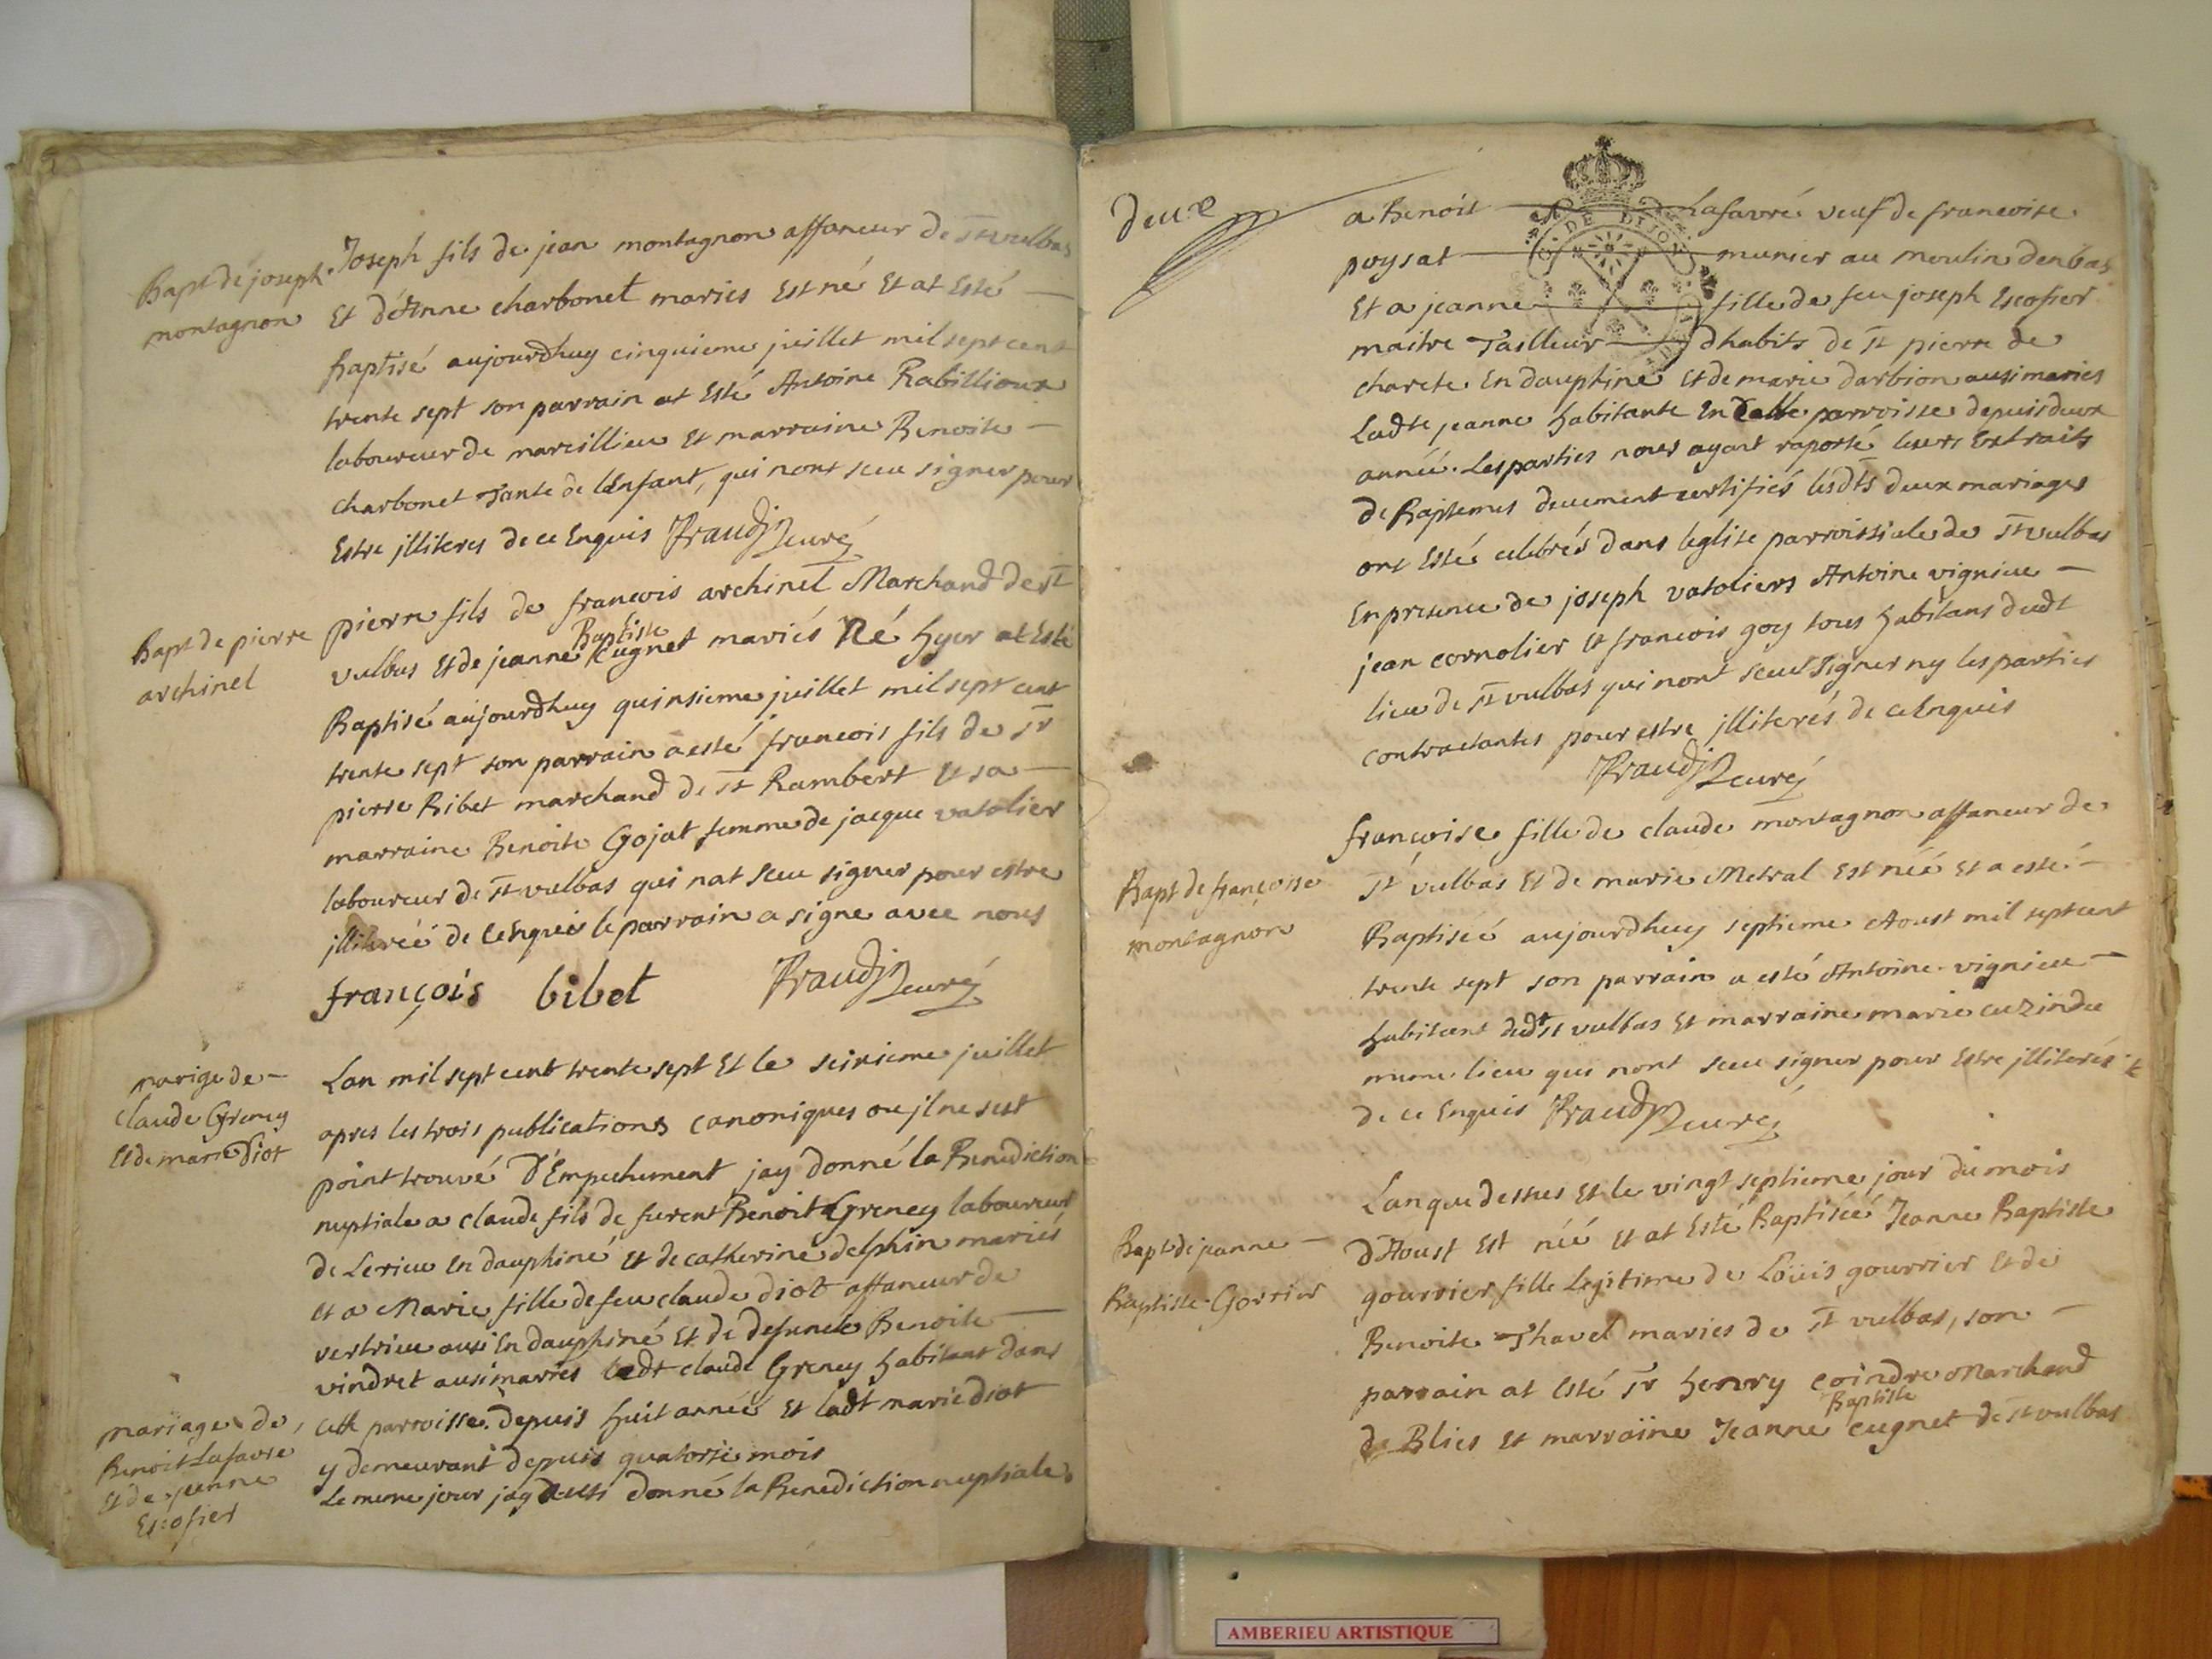 Bapt de joseph
montagnon
Joseph fils de jean montagnon affaneur de St vulbas
Et d'Anne charbonet mariés Est né Et at Esté
Baptisé aujourdhuy cinquieme juillet mil sept cent
trente sept son parrain at Esté Antoine Rabillioux
laboureur de marcillieu Et marraine Benoite
charbonet Tante de lEnfant, qui nont sceu signer pour
Estre jlliteres de ce Enquis curé
Bapt de pierre
archinel
pierre fils de francois archinel Marchand de St
vulbas Et de jeanne Baptiste Cugnet mariés Né hyer at Esté
Baptisé aujourdhuy quinsieme juillet mil sept cent
trente sept son parrain a esté francois fils de Sr
pierre Bibet marchand de St Rambert Et sa
marraine Benoite Gojat femme de jacque vatolier
laboureur de St vulbas qui nat sceu signer pour estre
jlliterée de ce Enquis le parrain a signe avec nous
françois bibet curé
marige de
claude Greney
Et de marie Diot
Lan mil sept cent trente sept Et le seisieme juillet
apres les trois publications canoniques ou jl ne sest
point trouvé d'Empechement jay donné la Benediction
nuptiale a claude fils de furent Benoit Greney laboureur
de Lerieu En dauphiné Et de catherine delphin mariés
et a Marie fille de feu claude diot affaneur de
vertrieu ausi En dauphiné Et de defuncte Benoite
vindret ausi mariés ledt claude Greney habitant dans
cette parroisse depuis huit année Et ladt marie diot
y demeurant depuis quatorse mois
mariage de
Benoit Lafavre
Et de jeanne
Escofier
Le meme jour jay aussi donné la Benediction nuptiale
deux
a Benoit Lafavré veuf de francoise
poysat munier au moulin denbas
Et a jeanne fille de feu joseph Escofier
maitre Tailleur dhabits de St pierre de
charete En dauphiné Et de marie darbion ausi mariés
Ladte jeanne habitante En cette parroisse depuis deux
année. Les parties nous ayant raporté leurs Extraits
de Baptemes deuement certifiés lesdts deux mariages
ont Esté celebrés dans leglise parroissiale de St vulbas
En presence de joseph vatoliers Antoine vignieu
jean cornolier Et francois goy tous habitans dudt
lieu de St vulbas qui nont sceu signer ny les parties
contractantes pour estre jlliterés de ce Enquis
curé
Bapt de françoise
montagnon
françoise fille de claude montagnon affaneur de
St vulbas Et de marie Metral Est née Et a esté
Baptisée aujourdhuy septieme Aoust mil sept cent
trente sept son parrain a esté Antoine vignieu
habitant dudt St vulbas Et marraine marie cuzin du
meme lieu qui nont sceu signer pour Estre jlliterés
de ce Enquis curé
Bapt de jeanne
Baptiste Gorrier
Lan que dessus Et le vingt septieme jour du mois
d'Aoust Est née Et at Esté Baptisée Jeanne Baptiste
gourrier fille Legitime de Loüis gourrier Et de
Benoite Thavel maries de St vulbas, son
parrain at Esté Sr henry coindre Marchand
de Blies Et marraine Jeanne Baptiste Cugnet de St vulbas
AMBERIEU ARTISTIQUE